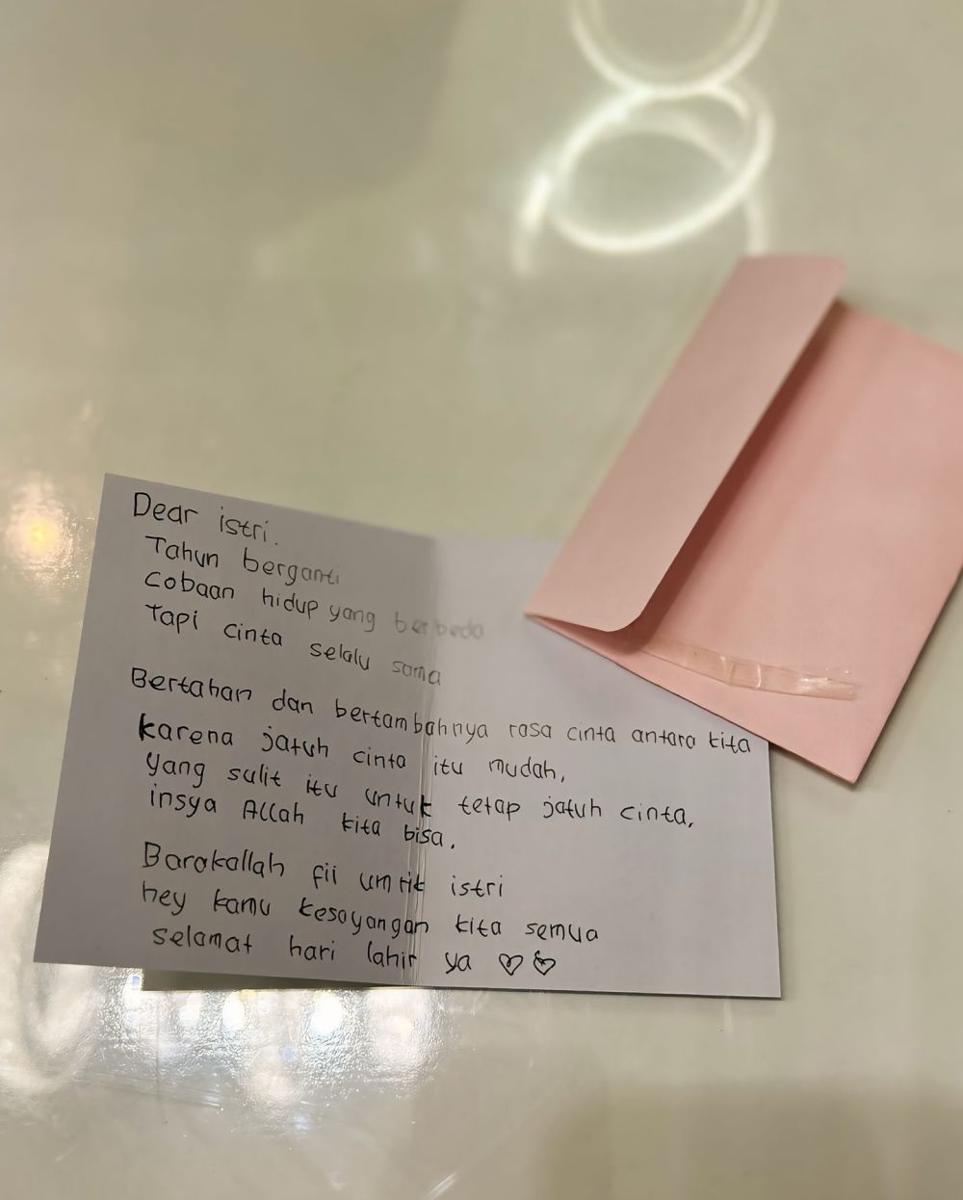 Dear istri.
Tahun berganti
Cobaan hidup yang berbeda
Tapi cinta selalu sama
Bertahan dan bertambahnya rasa cinta antara kita
karena jatuh cinta itu mudah,
yang sulit itu untuk tetap jatuh cinta,
insya Allah kita bisa.
Barakallah fii umrik istri
hey kamu kesayangan kita semua
selamat hari lahir ya ♡♡